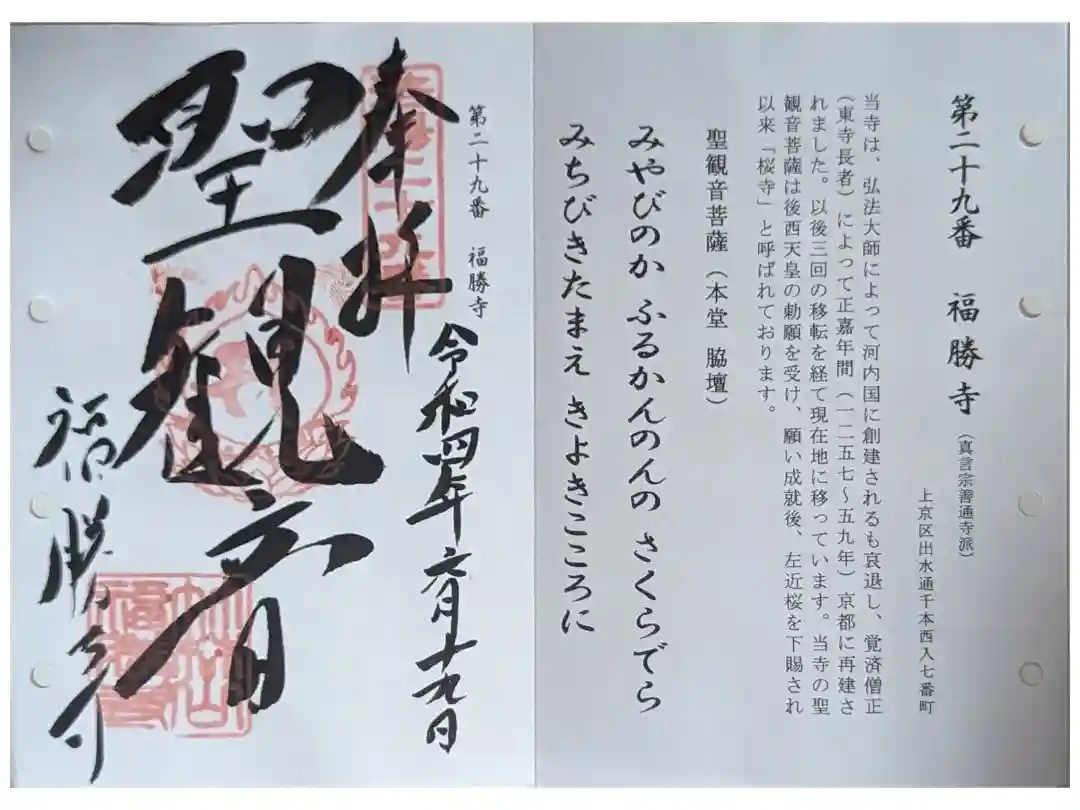 第二十九番 福勝寺（真言宗善通寺派）
上京区出水通千本西入七番町
当寺は、弘法大師によって河内国に創建されるも衰退し、覚済僧正
（東寺長者）によって正嘉年間（一二五七〜五九年）京都に再建さ
れました。以後三回の移転を経て現在地に移っています。当寺の聖
観音菩薩は後西天皇の勅願を受け、願い成就後、左近桜を下賜され
以来「桜寺」と呼ばれております。
聖観音菩薩（本堂 脇壇）
みやびのか ふるかんのんの さくらでら
みちびきたまえ きよきこころに
第二十九番 福勝寺
奉拝
令和四年六月十九日
聖観音
福勝寺